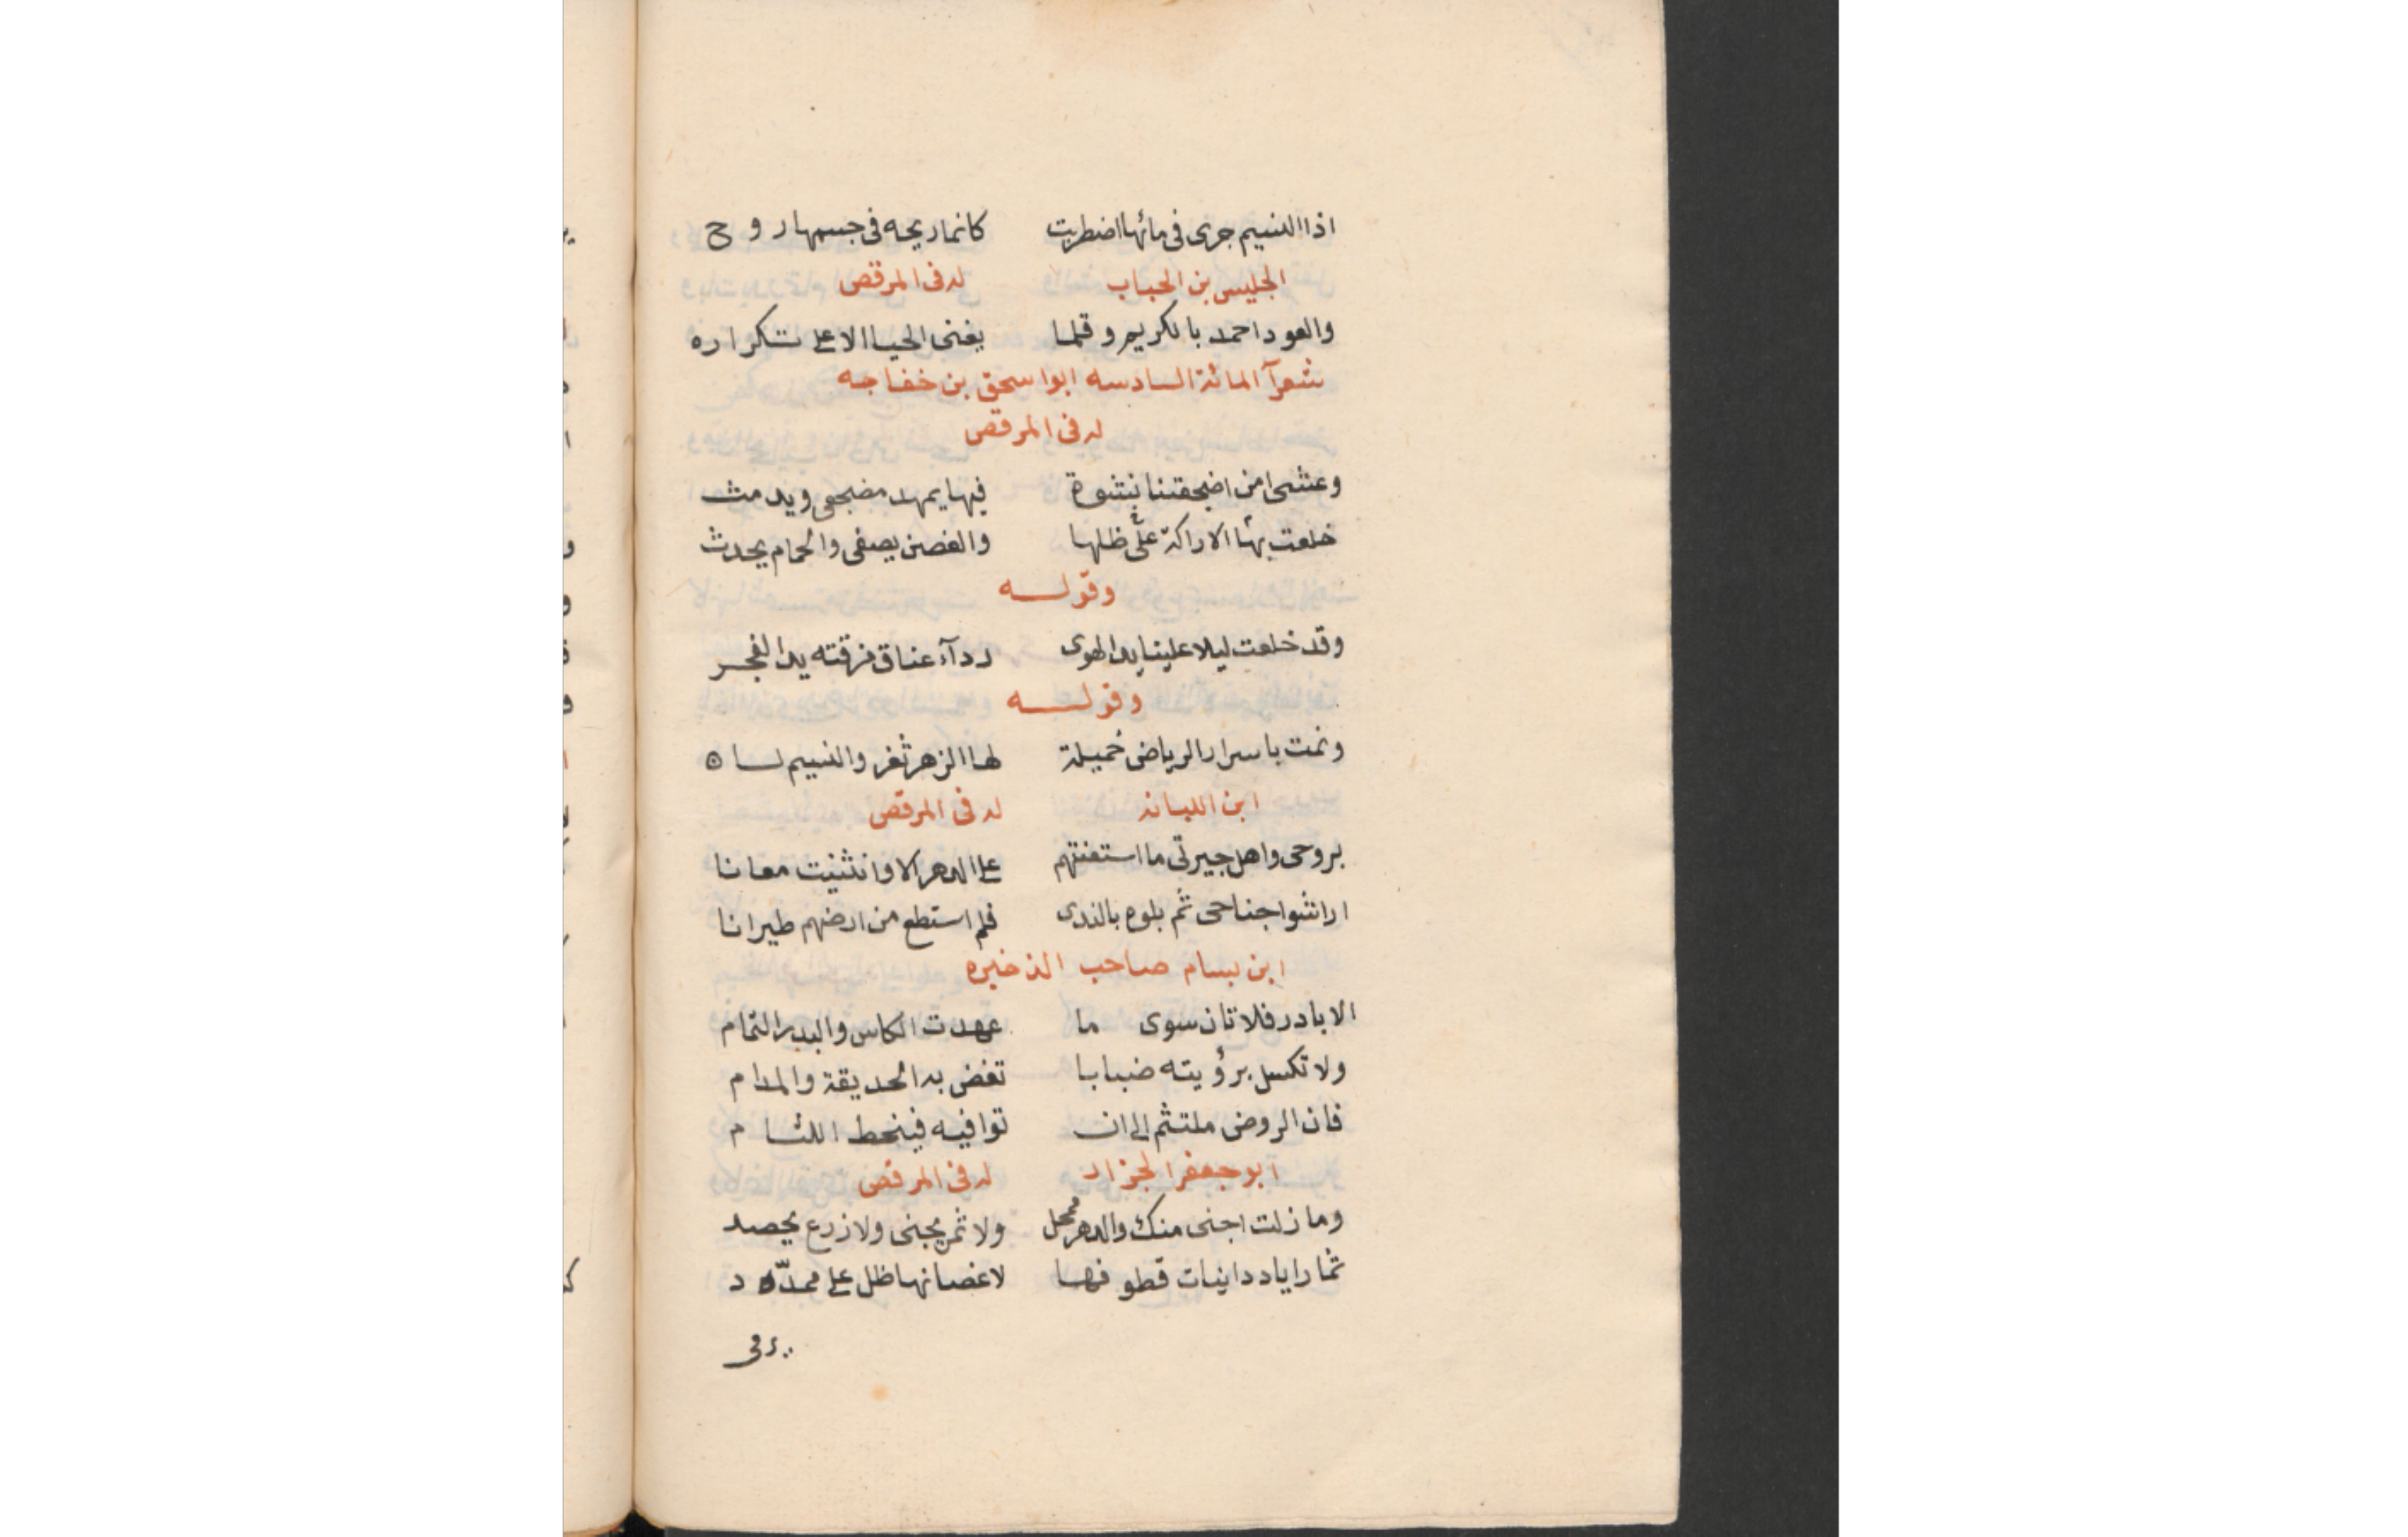 اذا النسيم جرى فى مائها اضطربت كانما ريحه فى جسمها روح
الجليس بن الحباب له فى المرقص
والعود احمد بالكريم وقلما يغنى الحيا الا على تكراره
شعرآ المائة السادسه ابو اسحق بن خفاجه
له فى المرقص
وعشى امن اضجعتنا نشوة فيها يمهد مضجعى ويدمث
خلعت بها الاراكة علىّ ظلها والغصن يصغى والحمام يحدث
وقولـــه
وقد خلعت ليلا علينا يد الهوى ردآء عناق مزقته يد الفجر
وقولـــه
ونمت باسرار الرياض خميلة لها الزهر ثغر والنسيم لسان
ابن اللبانه له فى المرقص
بروحى واهلى جيرتى ما استعنتهم على الدهر الا وانثنيت معانا
اراشوا جناحى ثم بلوه بالندى فلم استطع من ارضهم طيرانا
ابن بسام صاحب الذخيره
الا بادر فلا ثان سوى ما عهدت الكاس والبدر التمام
ولا تكسل برؤيته ضبابا تغض به الحديقة والمدام
فان الروض ملتثم الى ان توافيه فينحط اللثام
ابو جعفر الجزار له فى المرقص
وما زلت اجنى منك والدهر ممحل ولا ثمر يجنى ولا زرع يحصد
ثمار اياد دانيات قطوفها لاغصانها ظل على ممدّد